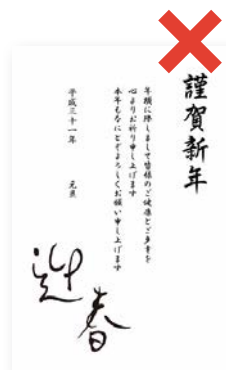 謹賀新年
年頭に際しまして皆様のご健康とご多幸を
心よりお祈り申し上げます
本年もなにとぞよろしくお願い申し上げます
平成三十一年 元旦
迎春